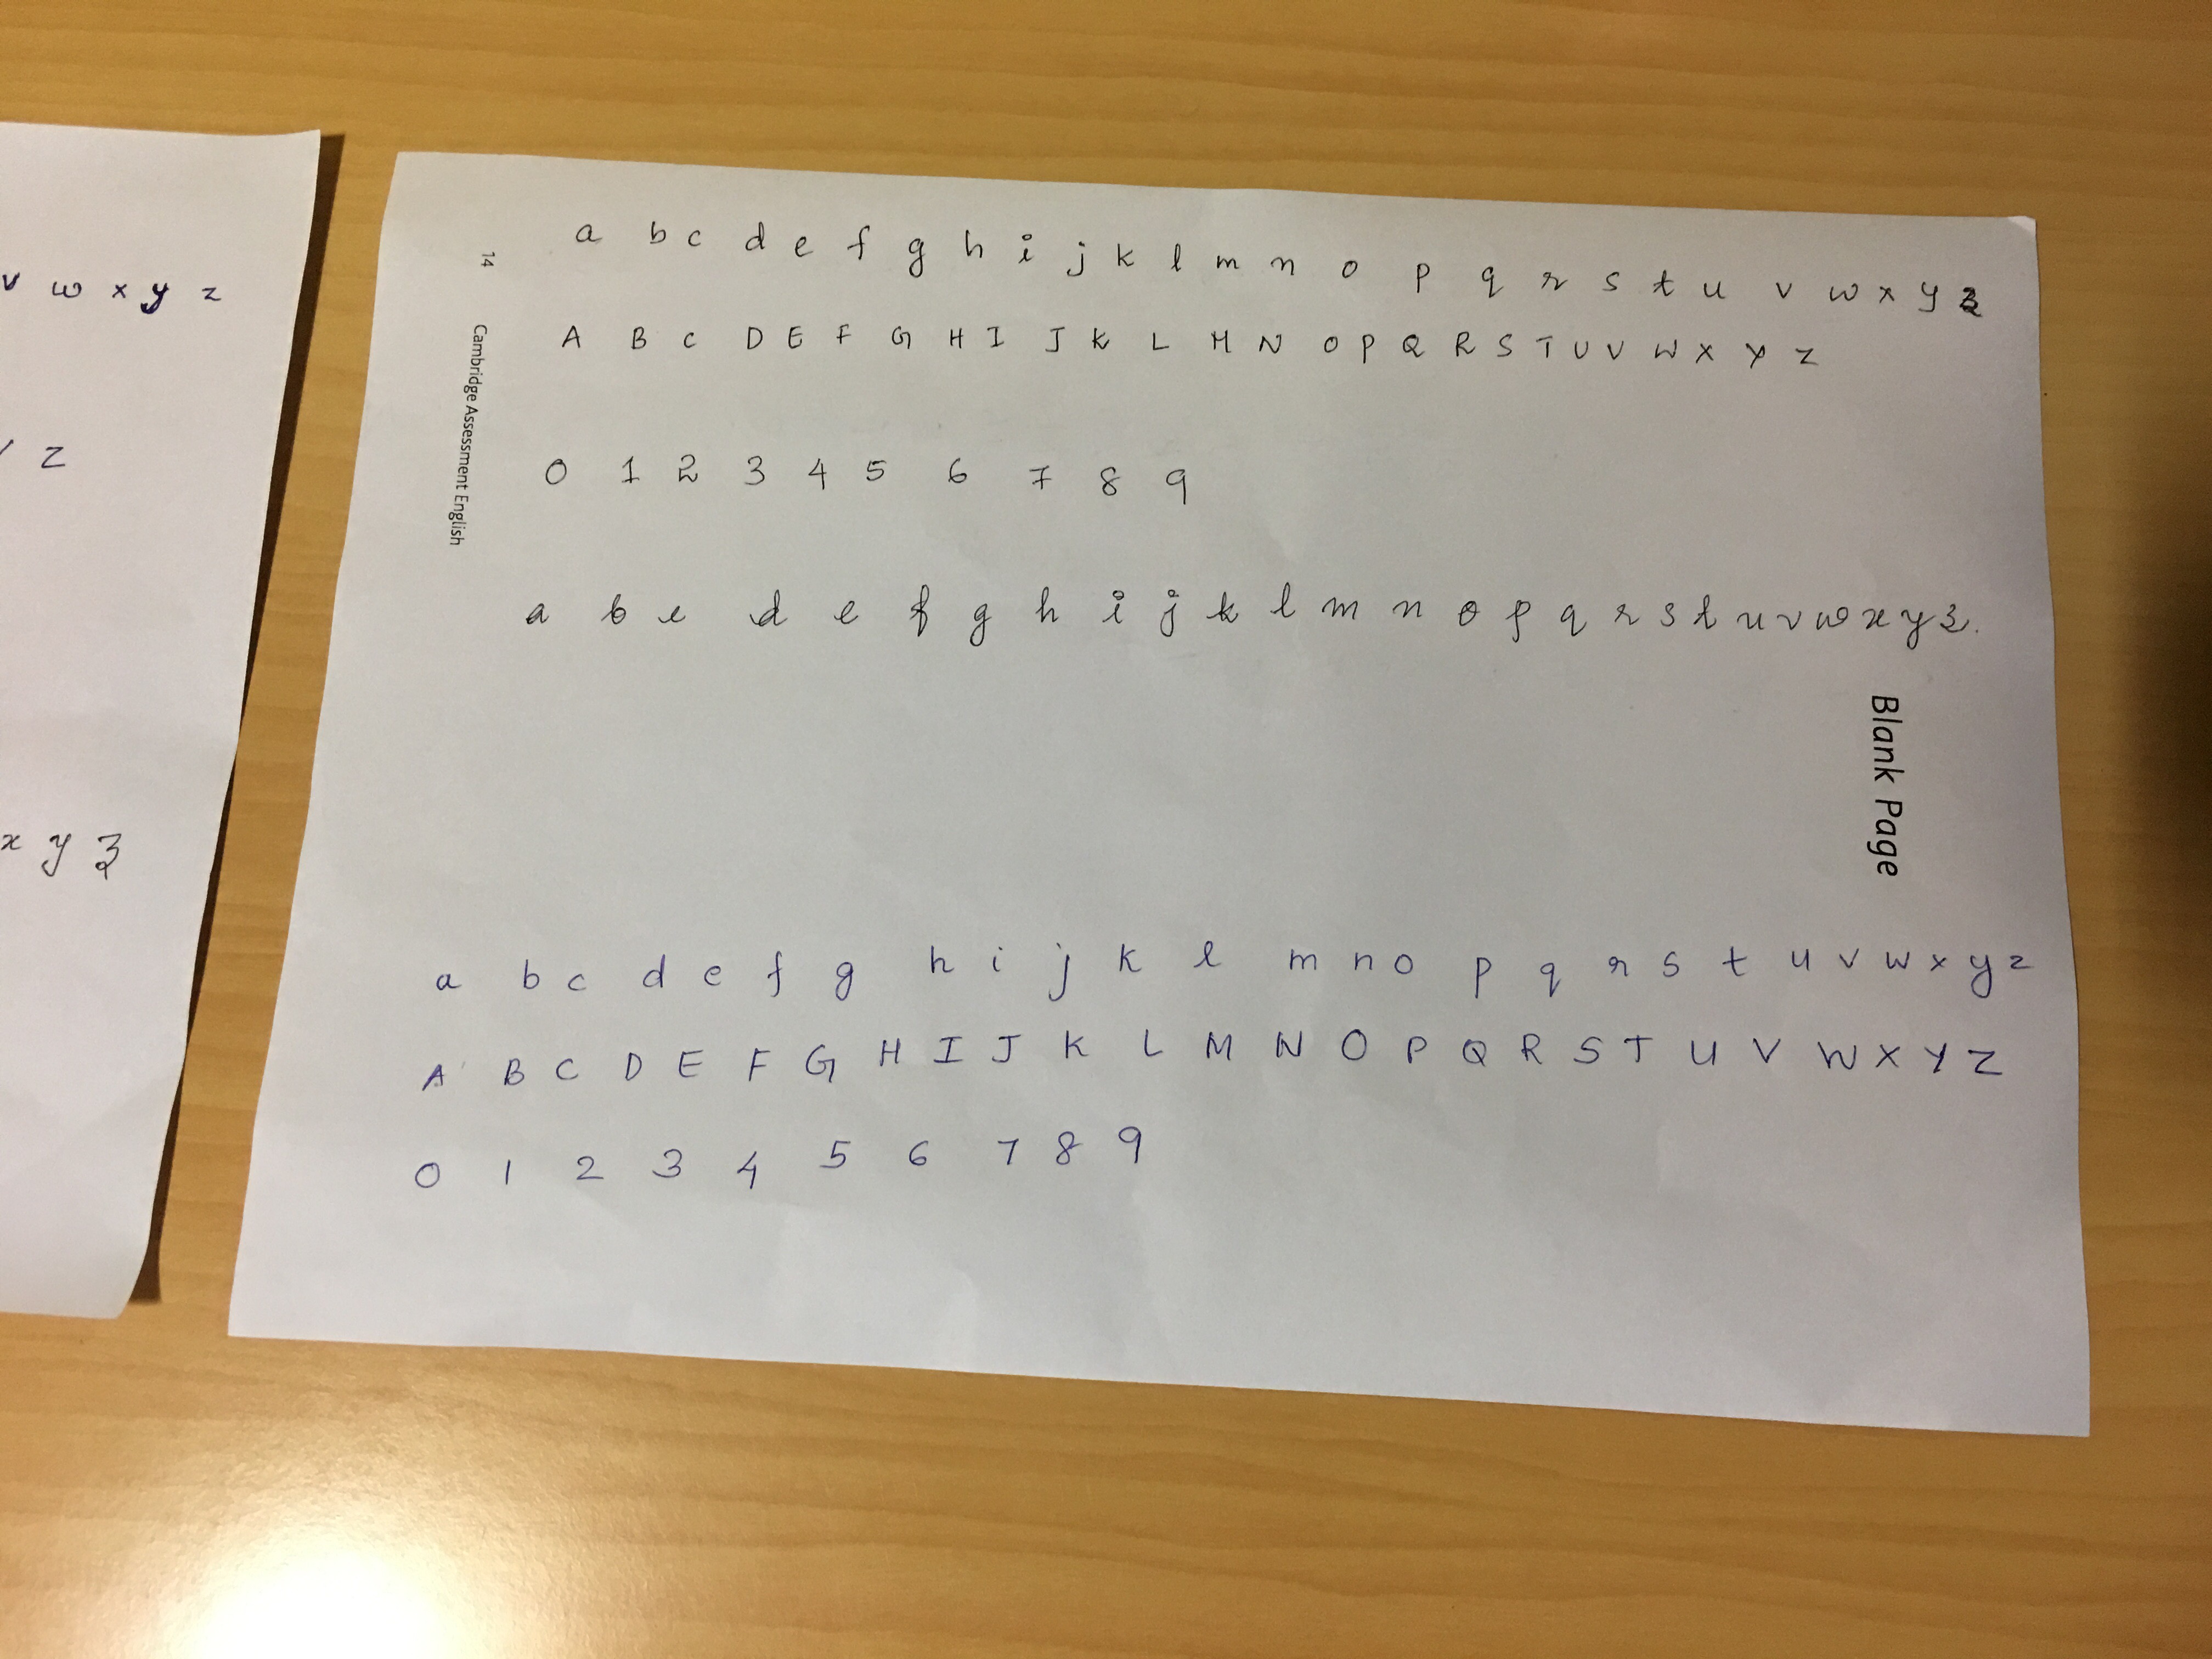 v w x y z
z
x y z
14
Cambridge Assessment English
a b c d e f g h i j k l m n o p q r s t u v w x y z
A B C D E F G H I J K L M N O P Q R S T U V W X Y Z
0 1 2 3 4 5 6 7 8 9
a b c d e f g h i j k l m n o p q r s t u v w x y z.
Blank Page
a b c d e f g h i j k l m n o p q r s t u v w x y z
A B C D E F G H I J K L M N O P Q R S T U V W X Y Z
0 1 2 3 4 5 6 7 8 9